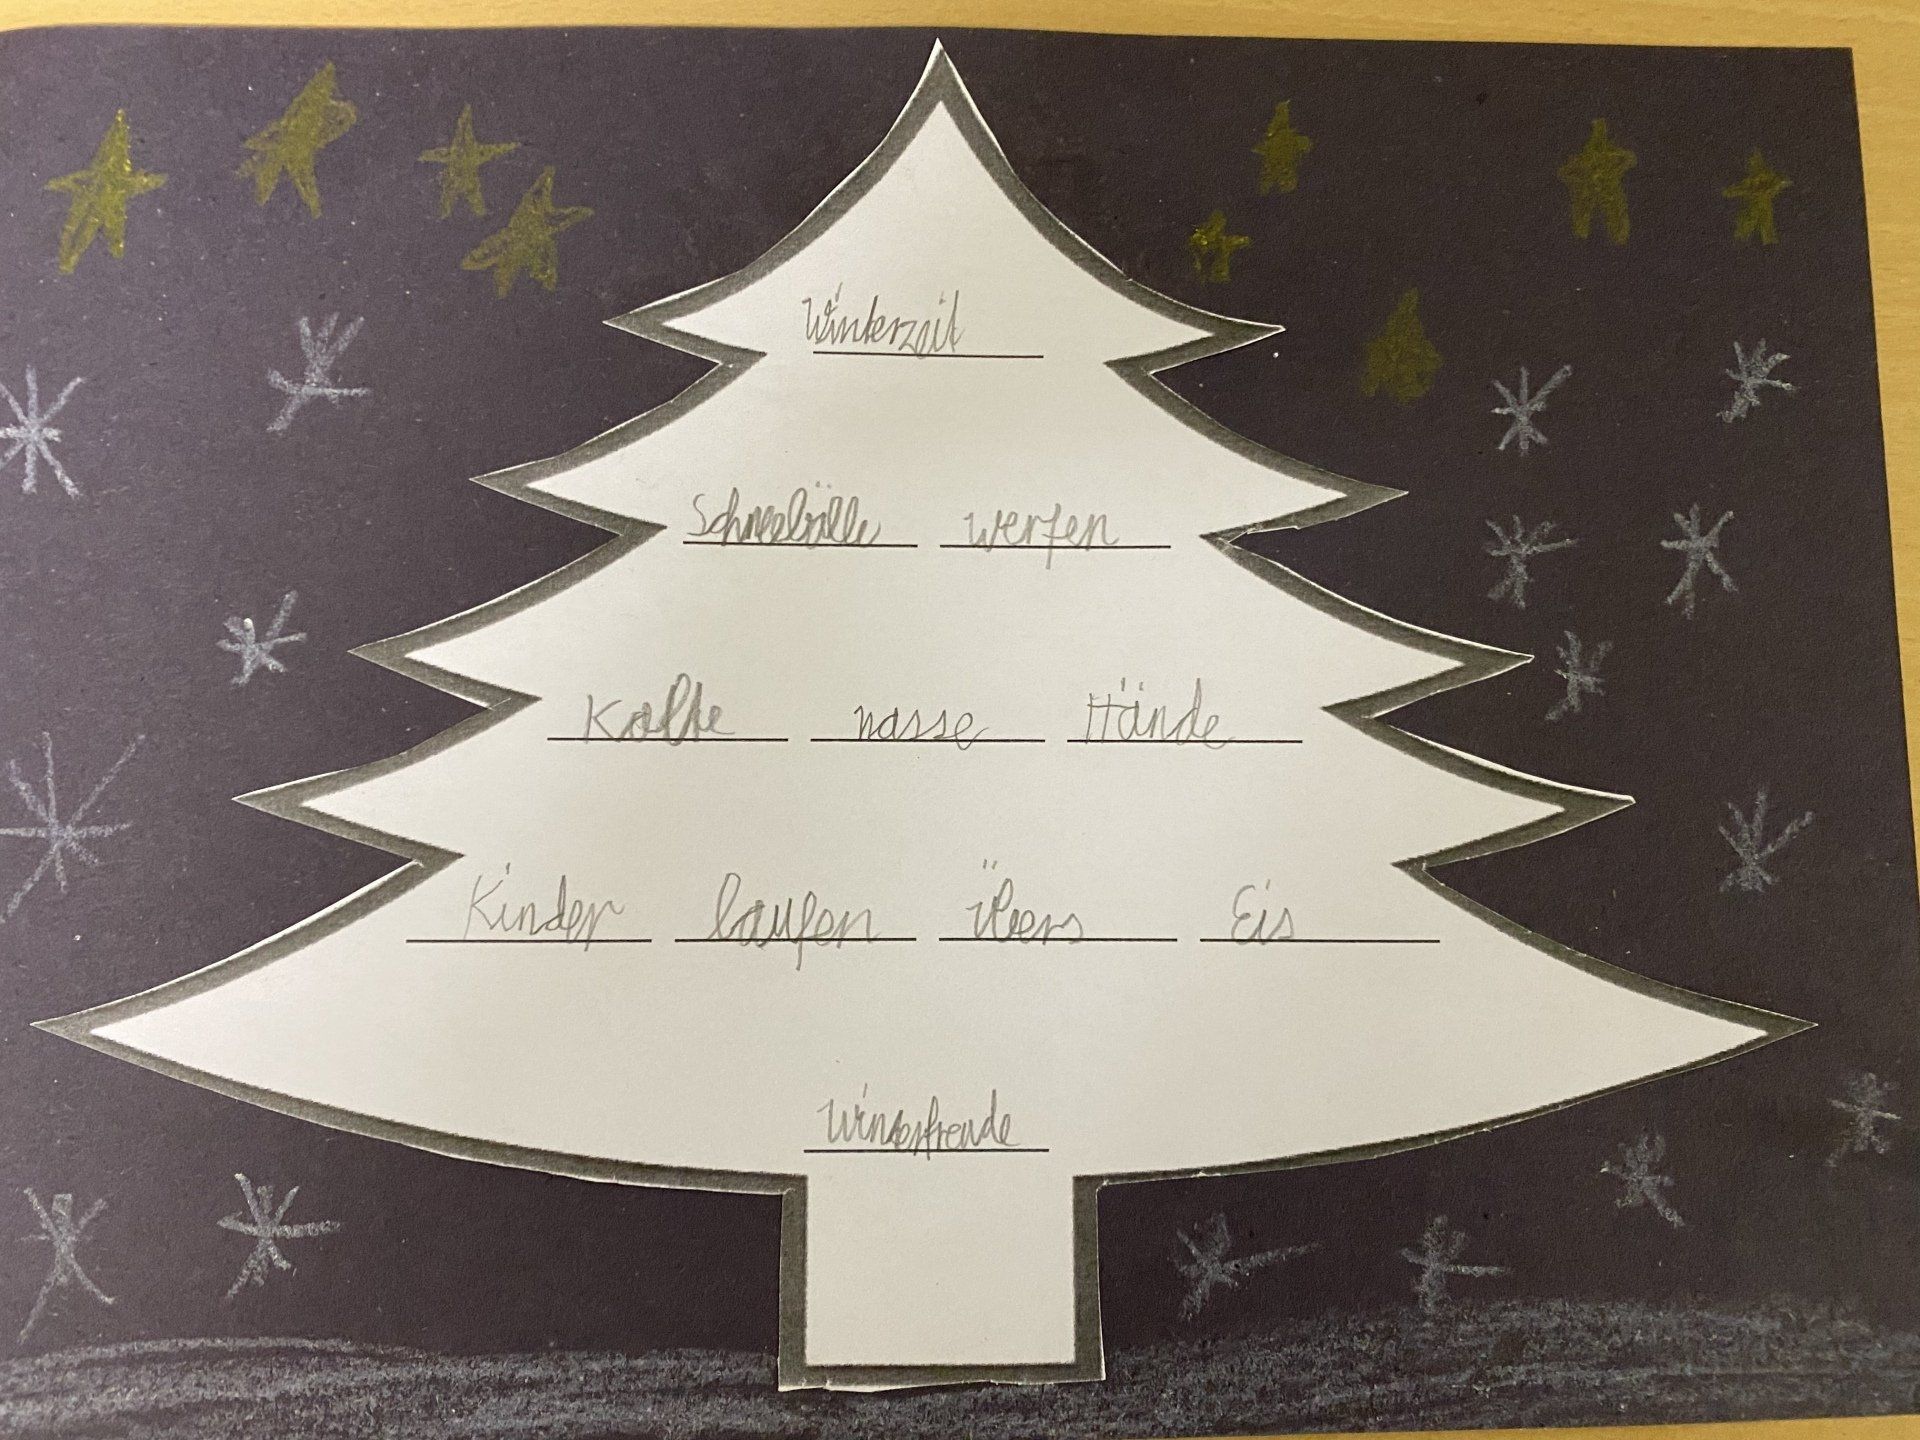 Winterzeit
Schneebälle werfen
Kalte nasse Hände
Kinder laufen übers Eis
Winterfreude